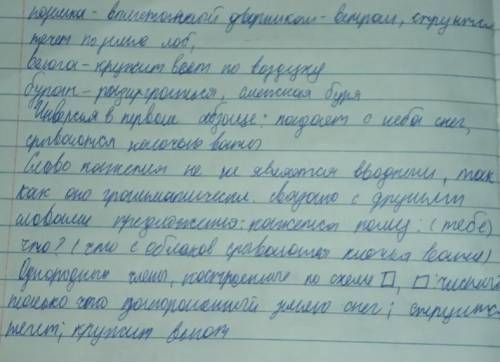 позёмка - вплетённый дверником - ветром, струится
течёт по земле лоб,
вьюга - кружит веет по воздуху
буран - разыграться, снежная буря
Инверсия в первом абзаце: падает с неба снег,
срываются клочья ваты
Слово кажется не не является вводным, так
как оно грамматически связано с другими
словами предложения: кажется кому? (тебе)
что? (что с облаков срываются клочья ваты)
Однородные члены, построенные по схеме □, □: чистый
только что запорошенный землю снег; струится
течёт; кружит вьюга